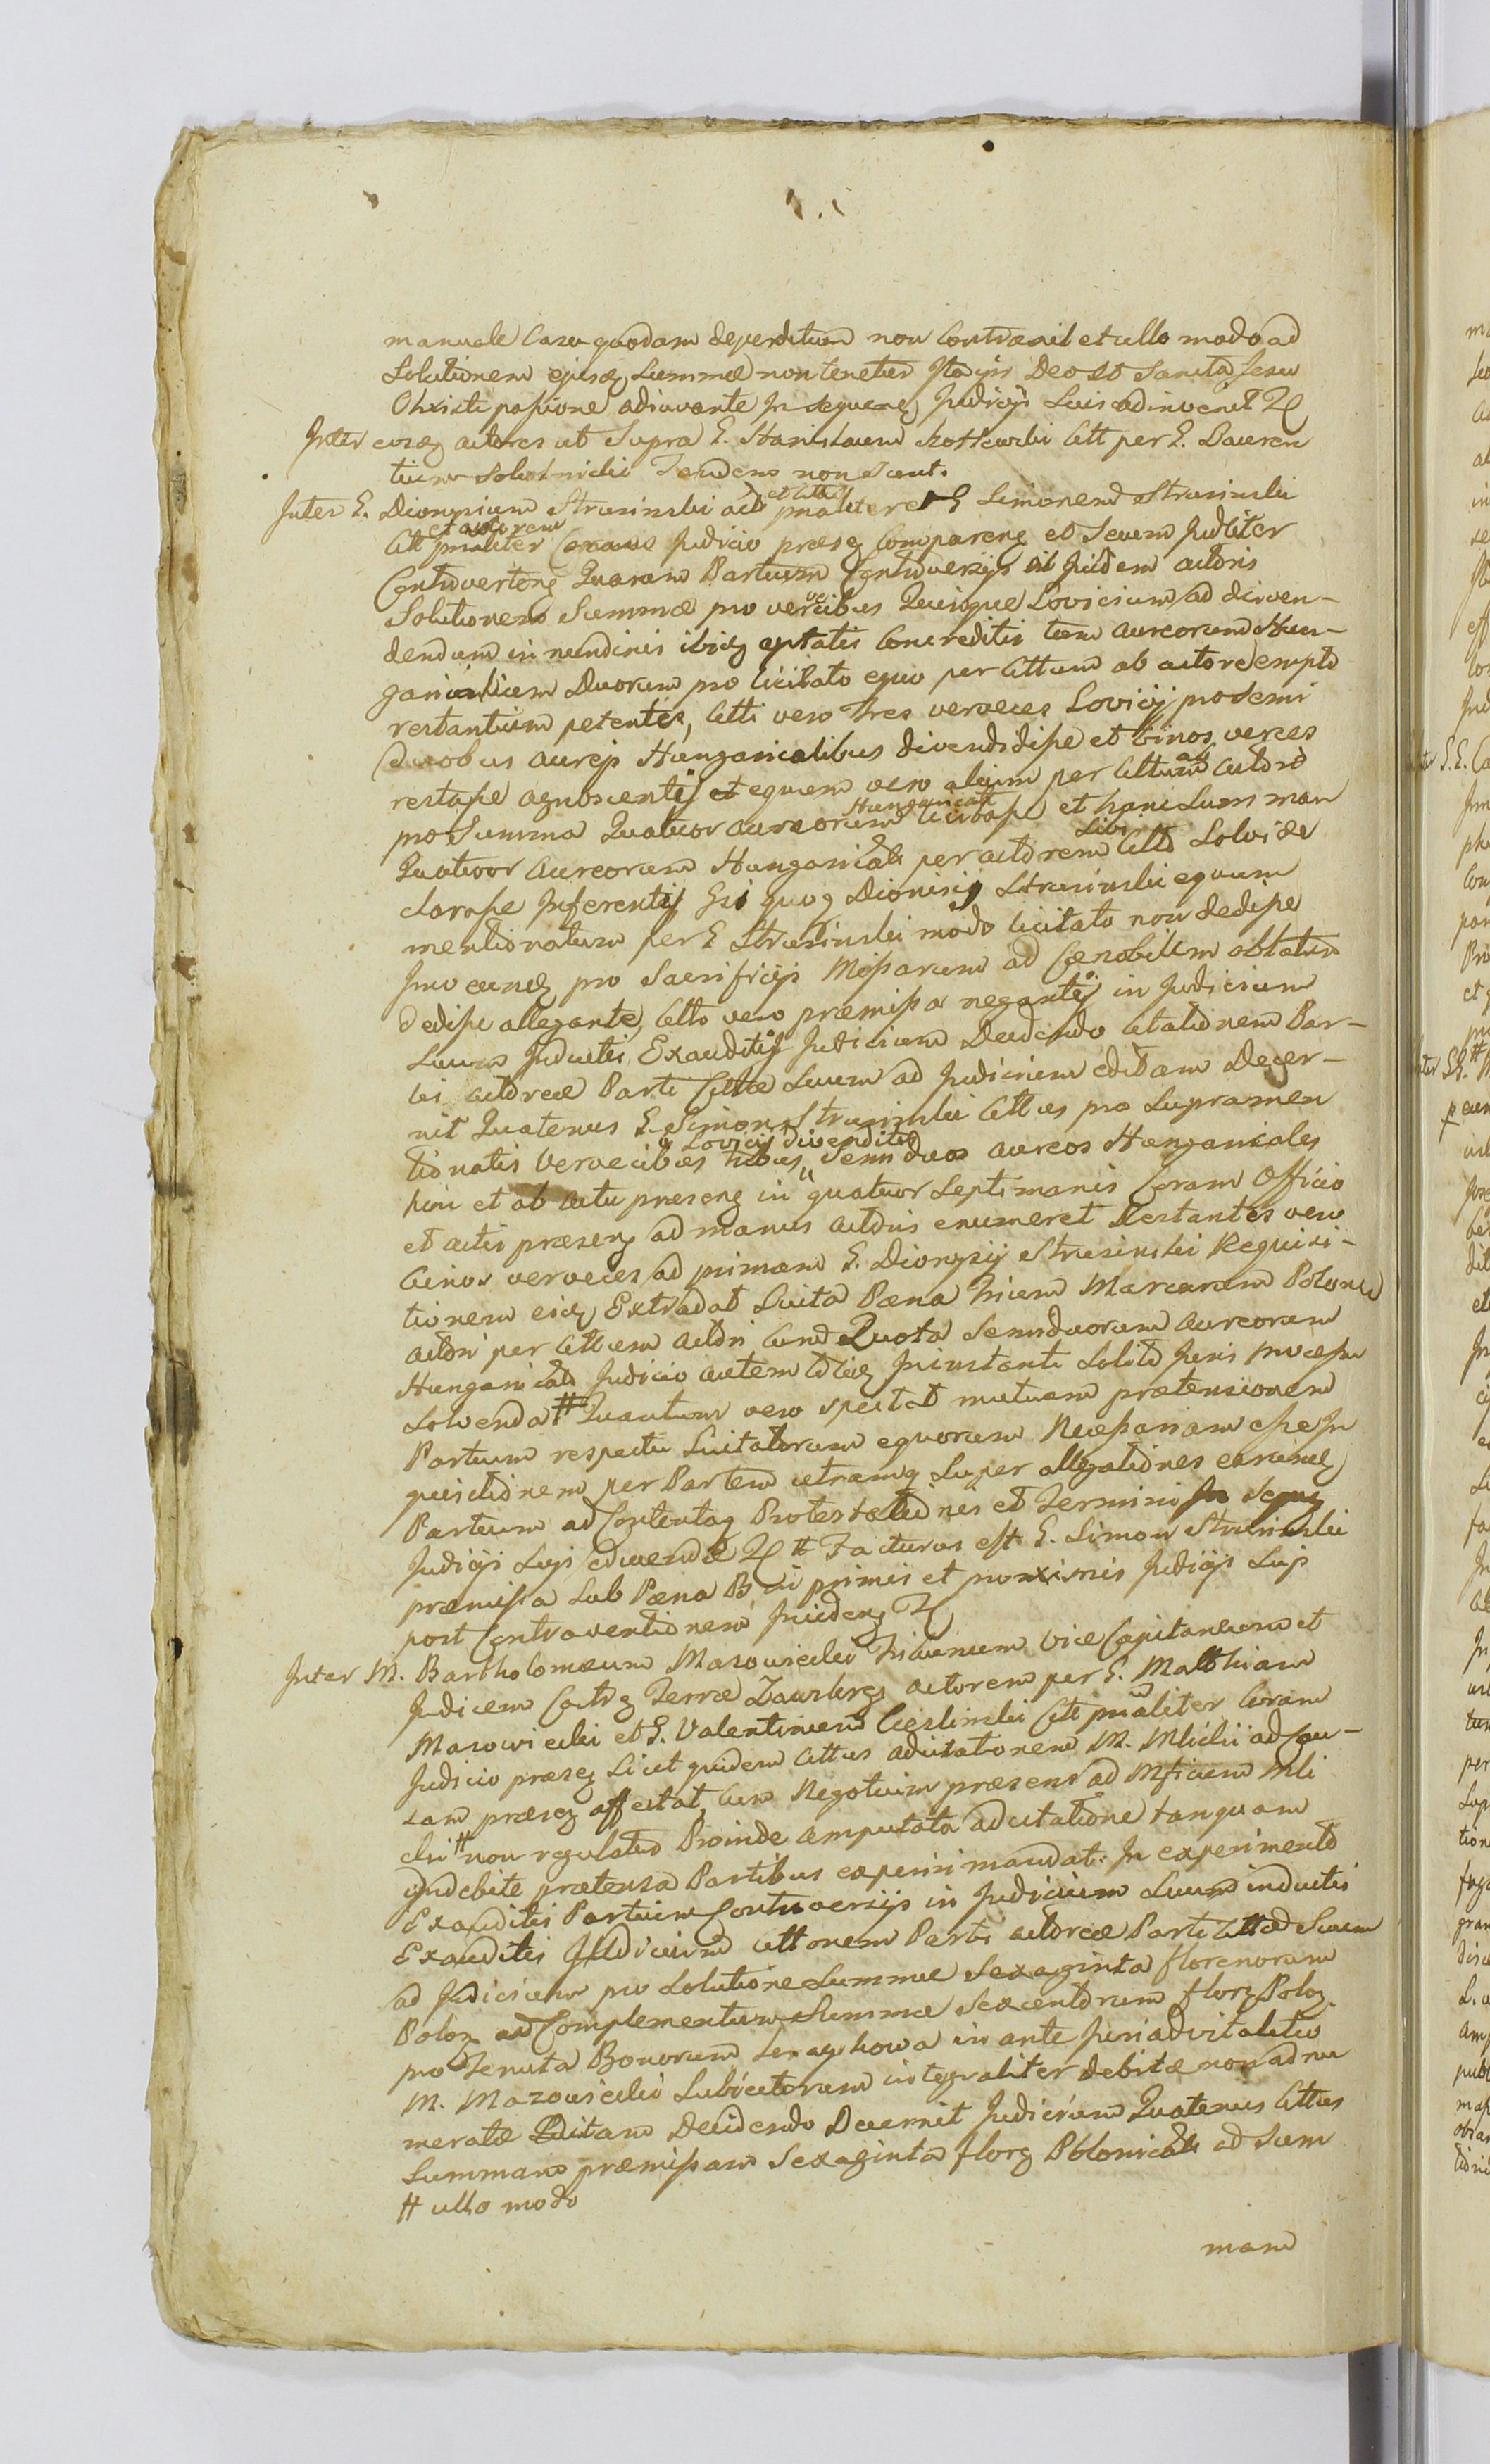 manuale Casu quodam deperditum non Contraxit et ullo modo ad
Solutionem ejusq Summæ non tenetur Ita ejus Deo et Sancta Jesu
Christi passione adiuvante In sequenq Judicijs Suis adinvenit
Inter eosq actores ut Supra G. Stanislaum Citt per G. Lauren
tium Tendens non Sunt.
Inter G. Dionysium Strusinski act pnaliter et G Simonem Strusinski
Citt pnaliter Coram Judicio præsq Comparenq et Seuem Judliter
Controvertenq Quarum Partium Controversijs siquidem actoris
Solutionem Summæ pro vervecibus Quinque Lovicium ad diven-
dendum in nundinis ibidq aptatis Concreditis tum aureorum Hun-
garicalium Duorum pro licitato equo per Cittum ab actore empto
restantium petentis, Citti vero tres verveces Lovicij pro Semi
duobus aureis Hungaricalibus divendidisse et binos verces
restasse agnoscentis et equum vero alium per Cittum actori
pro Summa Quatuor aureorum Hungaricali licitasse et hanc Summam
Quatuor Aureorum Hungarical per actorem Citto Sibi Solvi de
clarasse Inferentis Gsi quoq Dionisij Strusinski equum
mentionatum per G Strusinski modo licitato non dedisse
Imo eundq pro Sacrificijs Missarum ad Cænobium oblatum
dedisse allegante, Citto vero præmissa negante in Judicium
Suum Inductis Exauditis Judicium Decidendo Citationem Par-
ti actoreæ Parti Cittæ Suum ad Judicium editam Decer-
nit Quatenus G. Simon Strusinski Cittus pro Supramen
tionatis Vervecibus tribus Lovicij divenditis Semiduos aureos Hungaricales
hinc et ab actu præsenq in quatuor Septimanis Coram Officio
et actis præsenq ad manus actoris enumeret Restantes vero
binos verveces ad primam G. Dionysij Strusinski Requisi-
tionem eidq Extradat Luita Pæna trium Marcarum Polonic
actori per Cittum actori cum Quota Semiduorum aureorum
Hungarical Judicio autem Ininstanti Solito Juris processu
Solvenda # Quantum vero spectat mutuam prætensionem
Partium respectu Licitatorum equorum Necessariam esse In
quisitionem per Partem utramq Super allegationes earundq
Partium ad Contentaq Protestationis et Termini In Sequenq
Judicijs Suis educendæ # Facturus est G. Simon Strusinski
præmissa Sub Pæna B in primis et proximis Judicijs Suis
post Contraventionem Judenq
Inter M. Bartholomæum Mazowiecki Tribunum Vice Capitaneum et
Judicem Castrq Terræ Zawskrzq actorem per G. Matthiam
Mazowiecki et G. Valentinum Cieslinski Citt pnaliter Coram
Judicio præsq Licet quidem Cittus adcitationem M. Mlicki ad Cau-
sam præsq affectat, Cum Negotium præsens ad Mficum Mli
cki # non regulatur Proinde amputata adcitatione tanquam
indebite prætensa Partibus experiri mandat. In experimento
Exauditis Partium Controversijs in Judicium Suum inductis
Exauditis Judicium Citationem Parti actoreæ Parti Citt ad Suum
ad Judicium pro Solutione Summæ Sexaginta florenorum
Polon ad Complementum Summæ Sexcentorum flor Polon
pro Tenuta Bonorum in ante Juri advitalitio
M. Mazowiecki Subiectorum integraliter debitæ non adnu
meratæ Editam Decidendo Decernit Judicium Quatenus Cittus
Summam præmissam Sexaginta florq Polonicali ad Sum
# ullo modo
mam